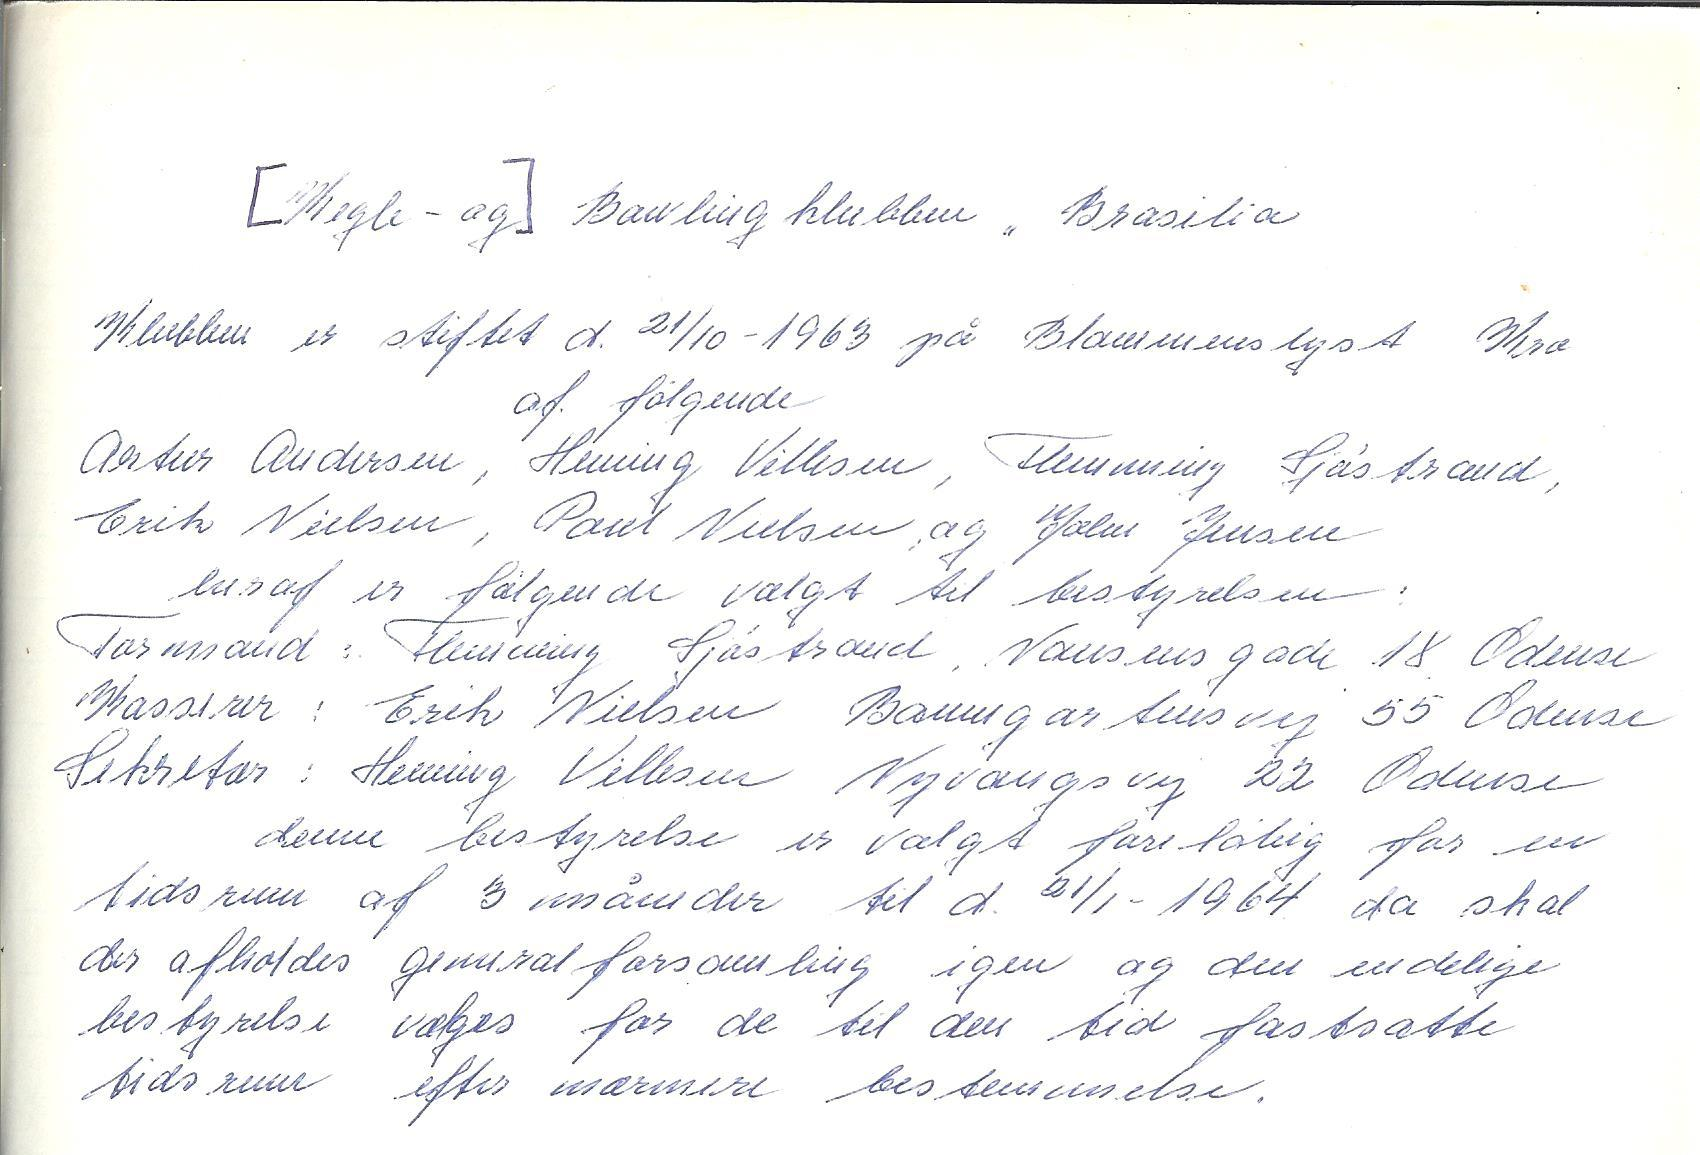 [Kegle - og] Bowlingklubben „ Brasilia
Klubben er stiftet d. 21/10 - 1963 på Blommenslyst Kro
af. følgende
Artur Andersen, Henning Villesen, Flemming Sjøstrand,
Erik Nielsen, Poul Nielsen, og John Jensen
heraf er følgende valgt til bestyrelsen :
Formand : Flemming Sjøstrand, Nansensgade 18 Odense
Kasserer : Erik Nielsen Baumgartensvej 55 Odense
Sekretær : Henning Villesen Nyvangsvej 22 Odense
denne bestyrelse er valgt foreløbig for en
tidsrum af 3 måneder til d. 21/1 - 1964 da skal
der afholdes generalforsamling igen og den endelige
bestyrelse vælges for de til den tid fastsatte
tidsrum efter nærmere bestemmelse.